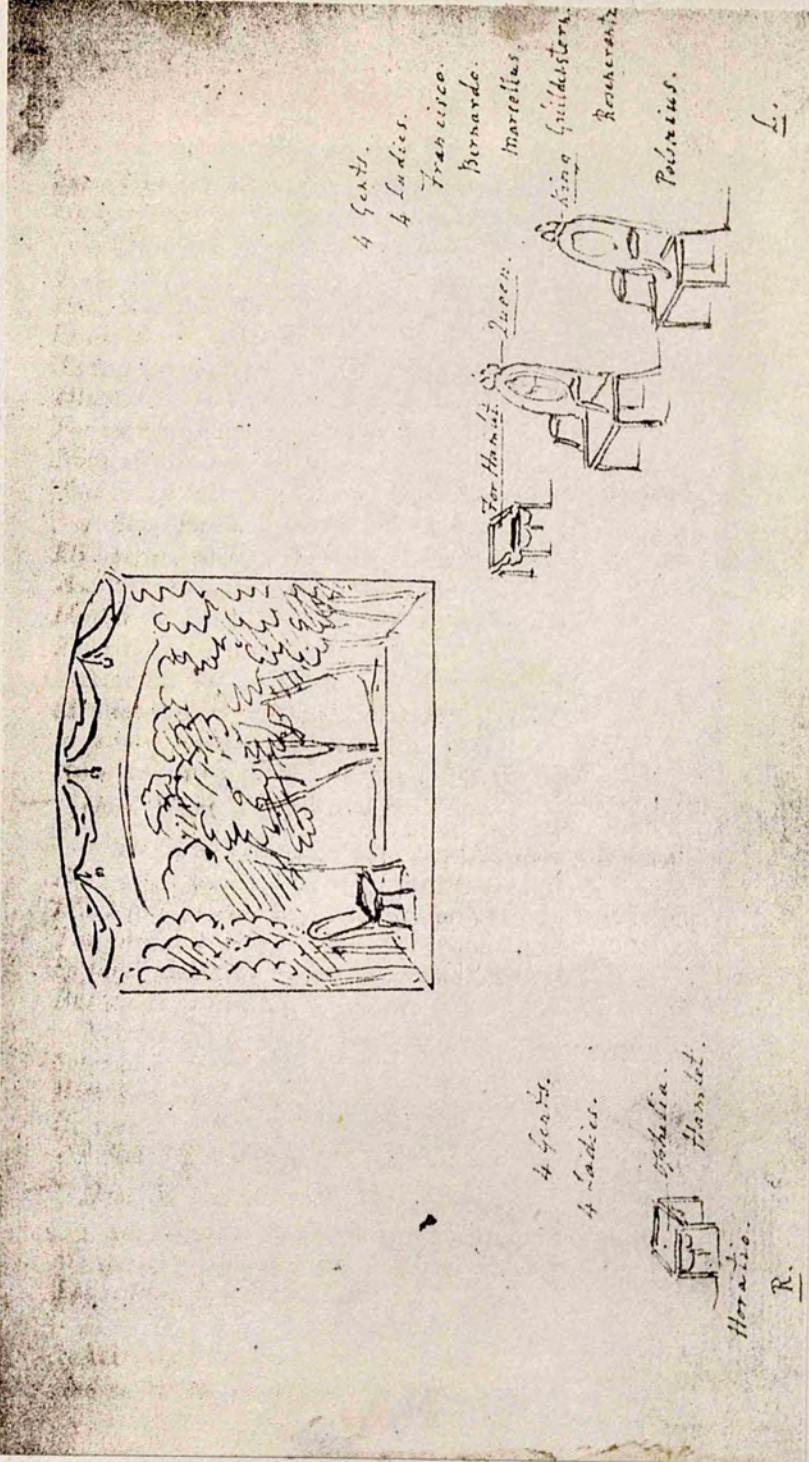 4 Gents.
4 Ladies.
Francisco.
Bernardo.
Marcellus.
King Guildenstern.
Rosencrantz
Polonius.
Queen.
For Hamlet.
L.
4 Gents.
4 Ladies.
Ophelia.
Hamlet.
Horatio.
R.